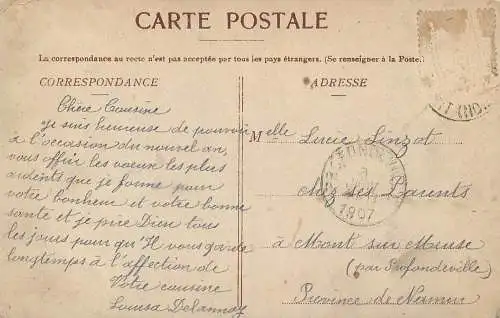 CARTE POSTALE
La correspondance au recto n'est pas acceptée par tous les pays étrangers. (Se renseigner à la Poste.)
CORRESPONDANCE
Chère Cousine
Je suis heureuse de pouvoir
à l'occasion du nouvel an,
vous offrir les vœux les plus
ardents que je forme pour
votre bonheur et votre bonne
santé et je prie Dieu tous
les jours pour qu'Il vous garde
longtemps à l'affection de
Votre cousine
Louisa Delannoy
ADRESSE
Melle Lucie Linzot
chez ses Parents
à Mont sur Meuse
(par Profondeville)
Province de Namur
1907